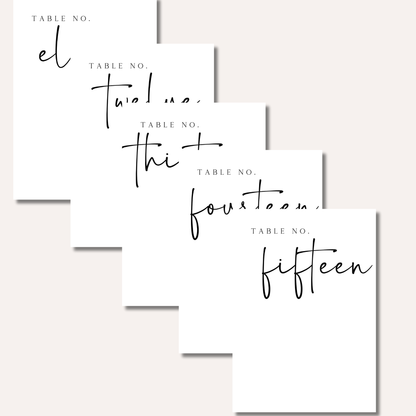 TABLE NO.
el
TABLE NO.
twelve
TABLE NO.
thi
TABLE NO.
fourteen
TABLE NO.
fifteen